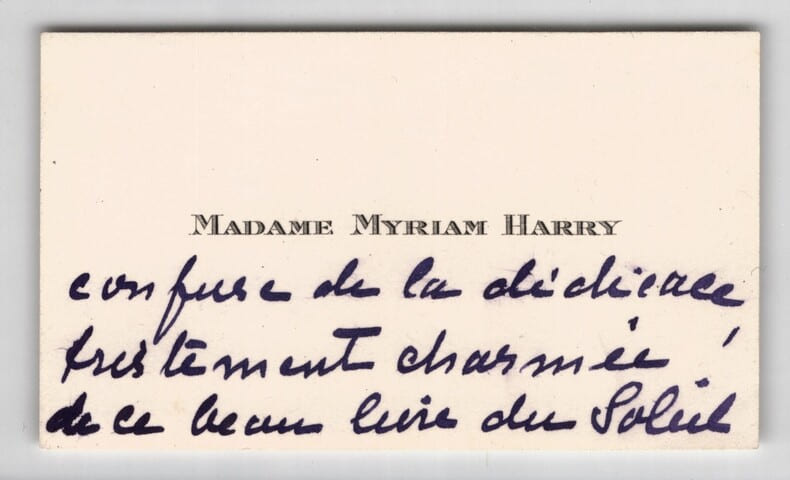 MADAME MYRIAM HARRY
confuse de la dédicace,
tristement charmée
de ce beau livre du Soleil